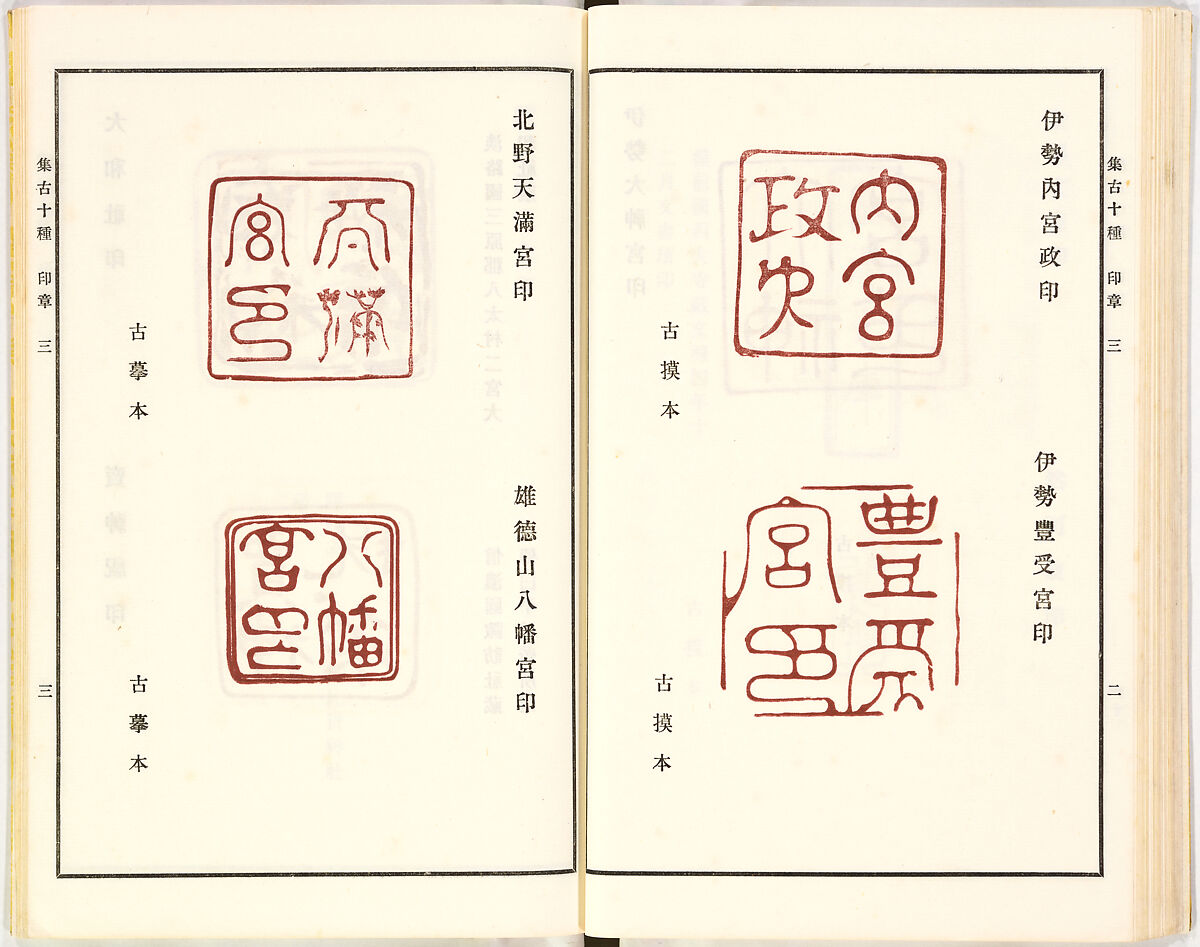 集古十種 印章 三
二
伊勢内宮政印
内宮政印
古摸本
伊勢豐受宮印
豊受宮印
古摸本
北野天滿宮印
天満宮印
古摹本
雄德山八幡宮印
八幡宮印
古摹本
集古十種 印章 三
三